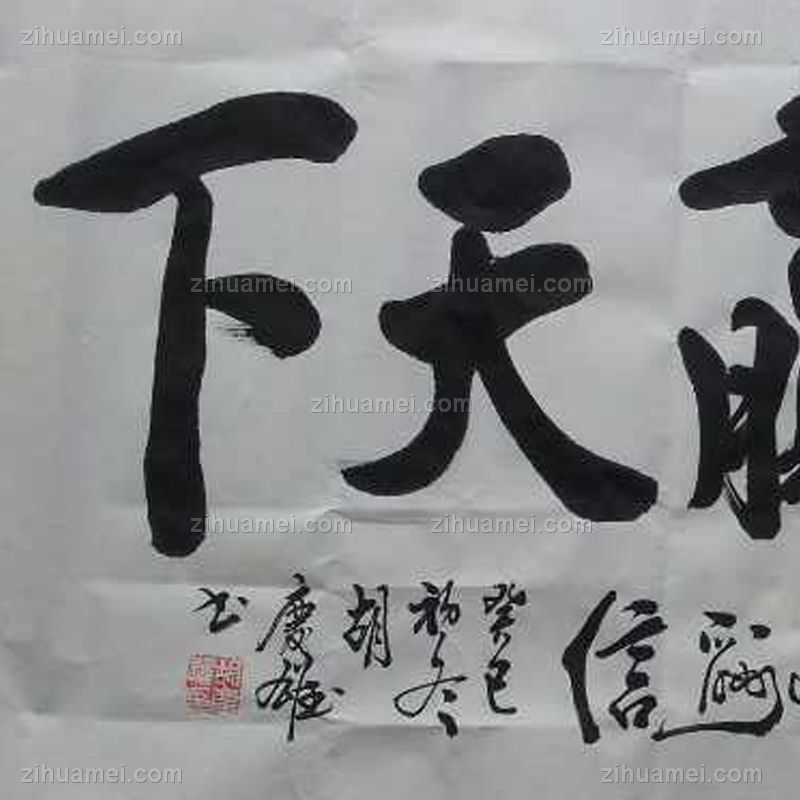 zihuamei.com zihuamei.com
天下
zihuamei.com zihuamei.com
zihuamei.com zihuamei.com
zihuamei.com zihuamei.com
信
癸巳
初冬
胡
慶雄
书
zihuamei.com zihuamei.com